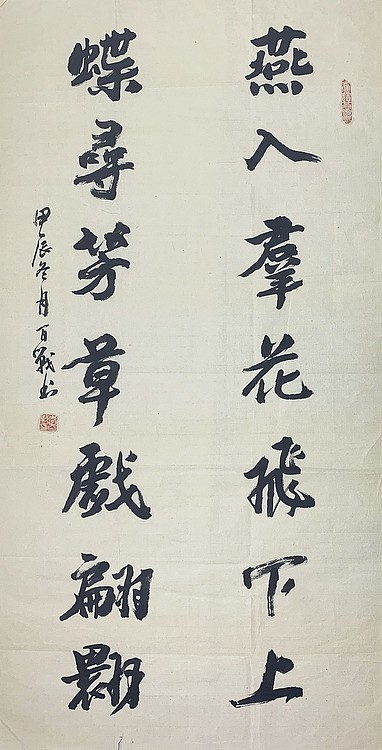 燕入羣花飛下上
蝶尋芳草戲翩翾
甲辰冬月百戰書